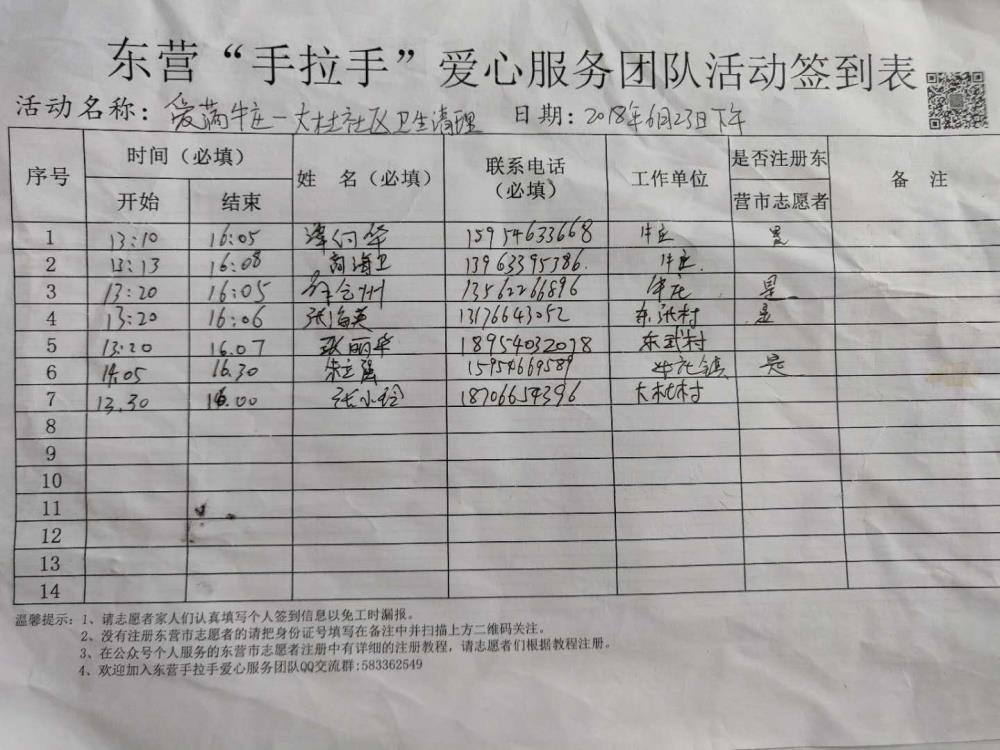 东营“手拉手”爱心服务团队活动签到表
活动名称：爱满牛庄-大杜社区卫生清理 日期：2018年6月23日下午
序号 时间（必填） 姓 名（必填） 联系电话（必填） 工作单位 是否注册东营市志愿者 备 注
开始 结束
1 13:10 16:05 15954633668 牛庄 是
2 13:13 16:08 高海卫 13963395386. 牛庄.
3 13:20 16:05 13562266896 牛庄 是
4 13:20 16:06 张海英 13176643052 东张村 是
5 13:20 16.07 张丽华 18954032078 东武村
6 14.05 16.30 朱立强 15954669589 牛庄镇 是
7 13.30 16.00 张小玲 18706654396 大杜村
8
9
10
11
12
13
14
温馨提示：1、请志愿者家人们认真填写个人签到信息以免工时漏报。
2、没有注册东营市志愿者的请把身份证号填写在备注中并扫描上方二维码关注。
3、在公众号个人服务的东营市志愿者注册中有详细的注册教程，请志愿者们根据教程注册。
4、欢迎加入东营手拉手爱心服务团队QQ交流群:583362549